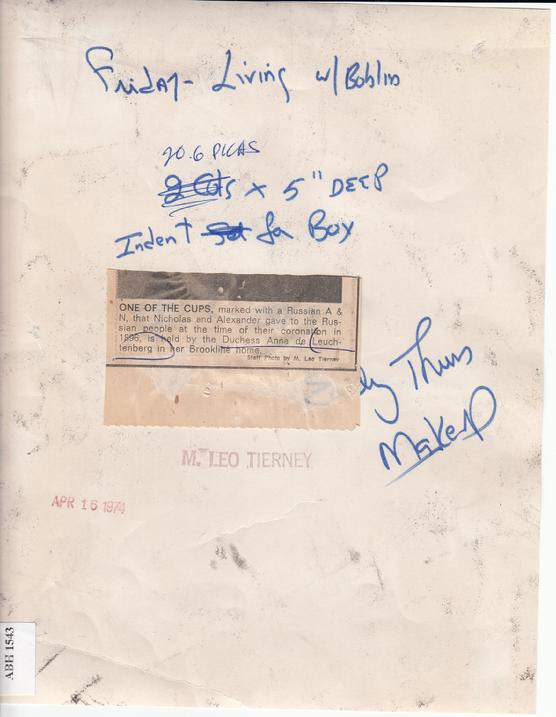 Friday - Living w/ Bohlin
20.6 PICAS
2 Cols x 5" DEEP
Indent for Box
ONE OF THE CUPS, marked with a Russian A &
N, that Nicholas and Alexander gave to the Rus-
sian people at the time of their coronation in
1896, is held by the Duchess Anna de Leuch-
tenberg in her Brookline home.
Staff Photo by M. Leo Tierney
Thurs
Makeup
M. LEO TIERNEY
APR 16 1974
ABH 1543